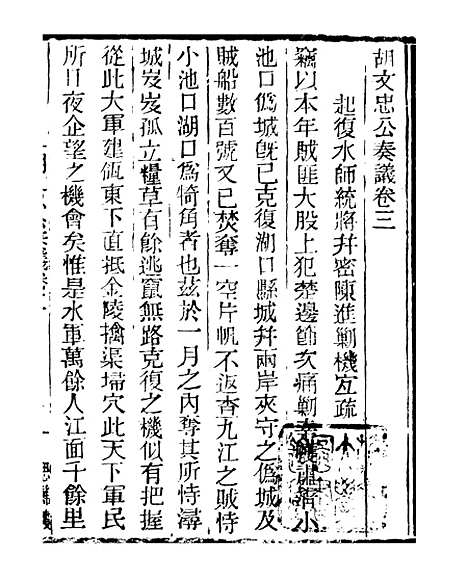 胡文忠公奏議卷三
起復水師統將幷密陳進剿機宜疏
竊以本年賊匪大股上犯楚邊節次痛剿小
池口僞城旣已克復湖口縣城幷兩岸夾守之僞城及
賊船數百號又已焚奪一空片帆不返查九江之賊恃
小池口湖口爲犄角者也茲於一月之內奪其所恃潯
城岌岌孤立糧草有餘逃竄無路克復之機似有把握
從此大軍建瓴東下直抵金陵擒渠埽穴此天下軍民
所日夜企望之機會矣惟是水軍萬餘人江面千餘里